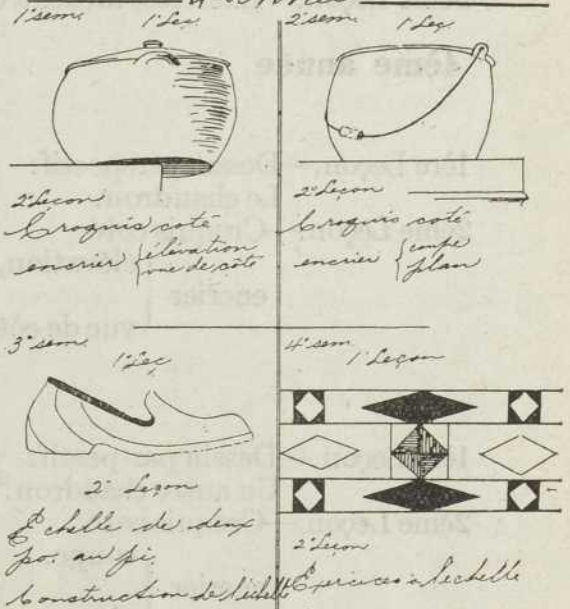 1e sem. 1e Leç.
2e Leçon
Croquis coté
encrier { élévation
vue de côté
2e sem. 1e Leç
2e Leçon
Croquis coté
encrier { coupe
plan
3e sem.
1e Leç
2e Leçon
Echelle de deux
po. au pi.
Construction de l'échelle
4e sem.
1e Leçon
2e Leçon
Exercices à l'échelle